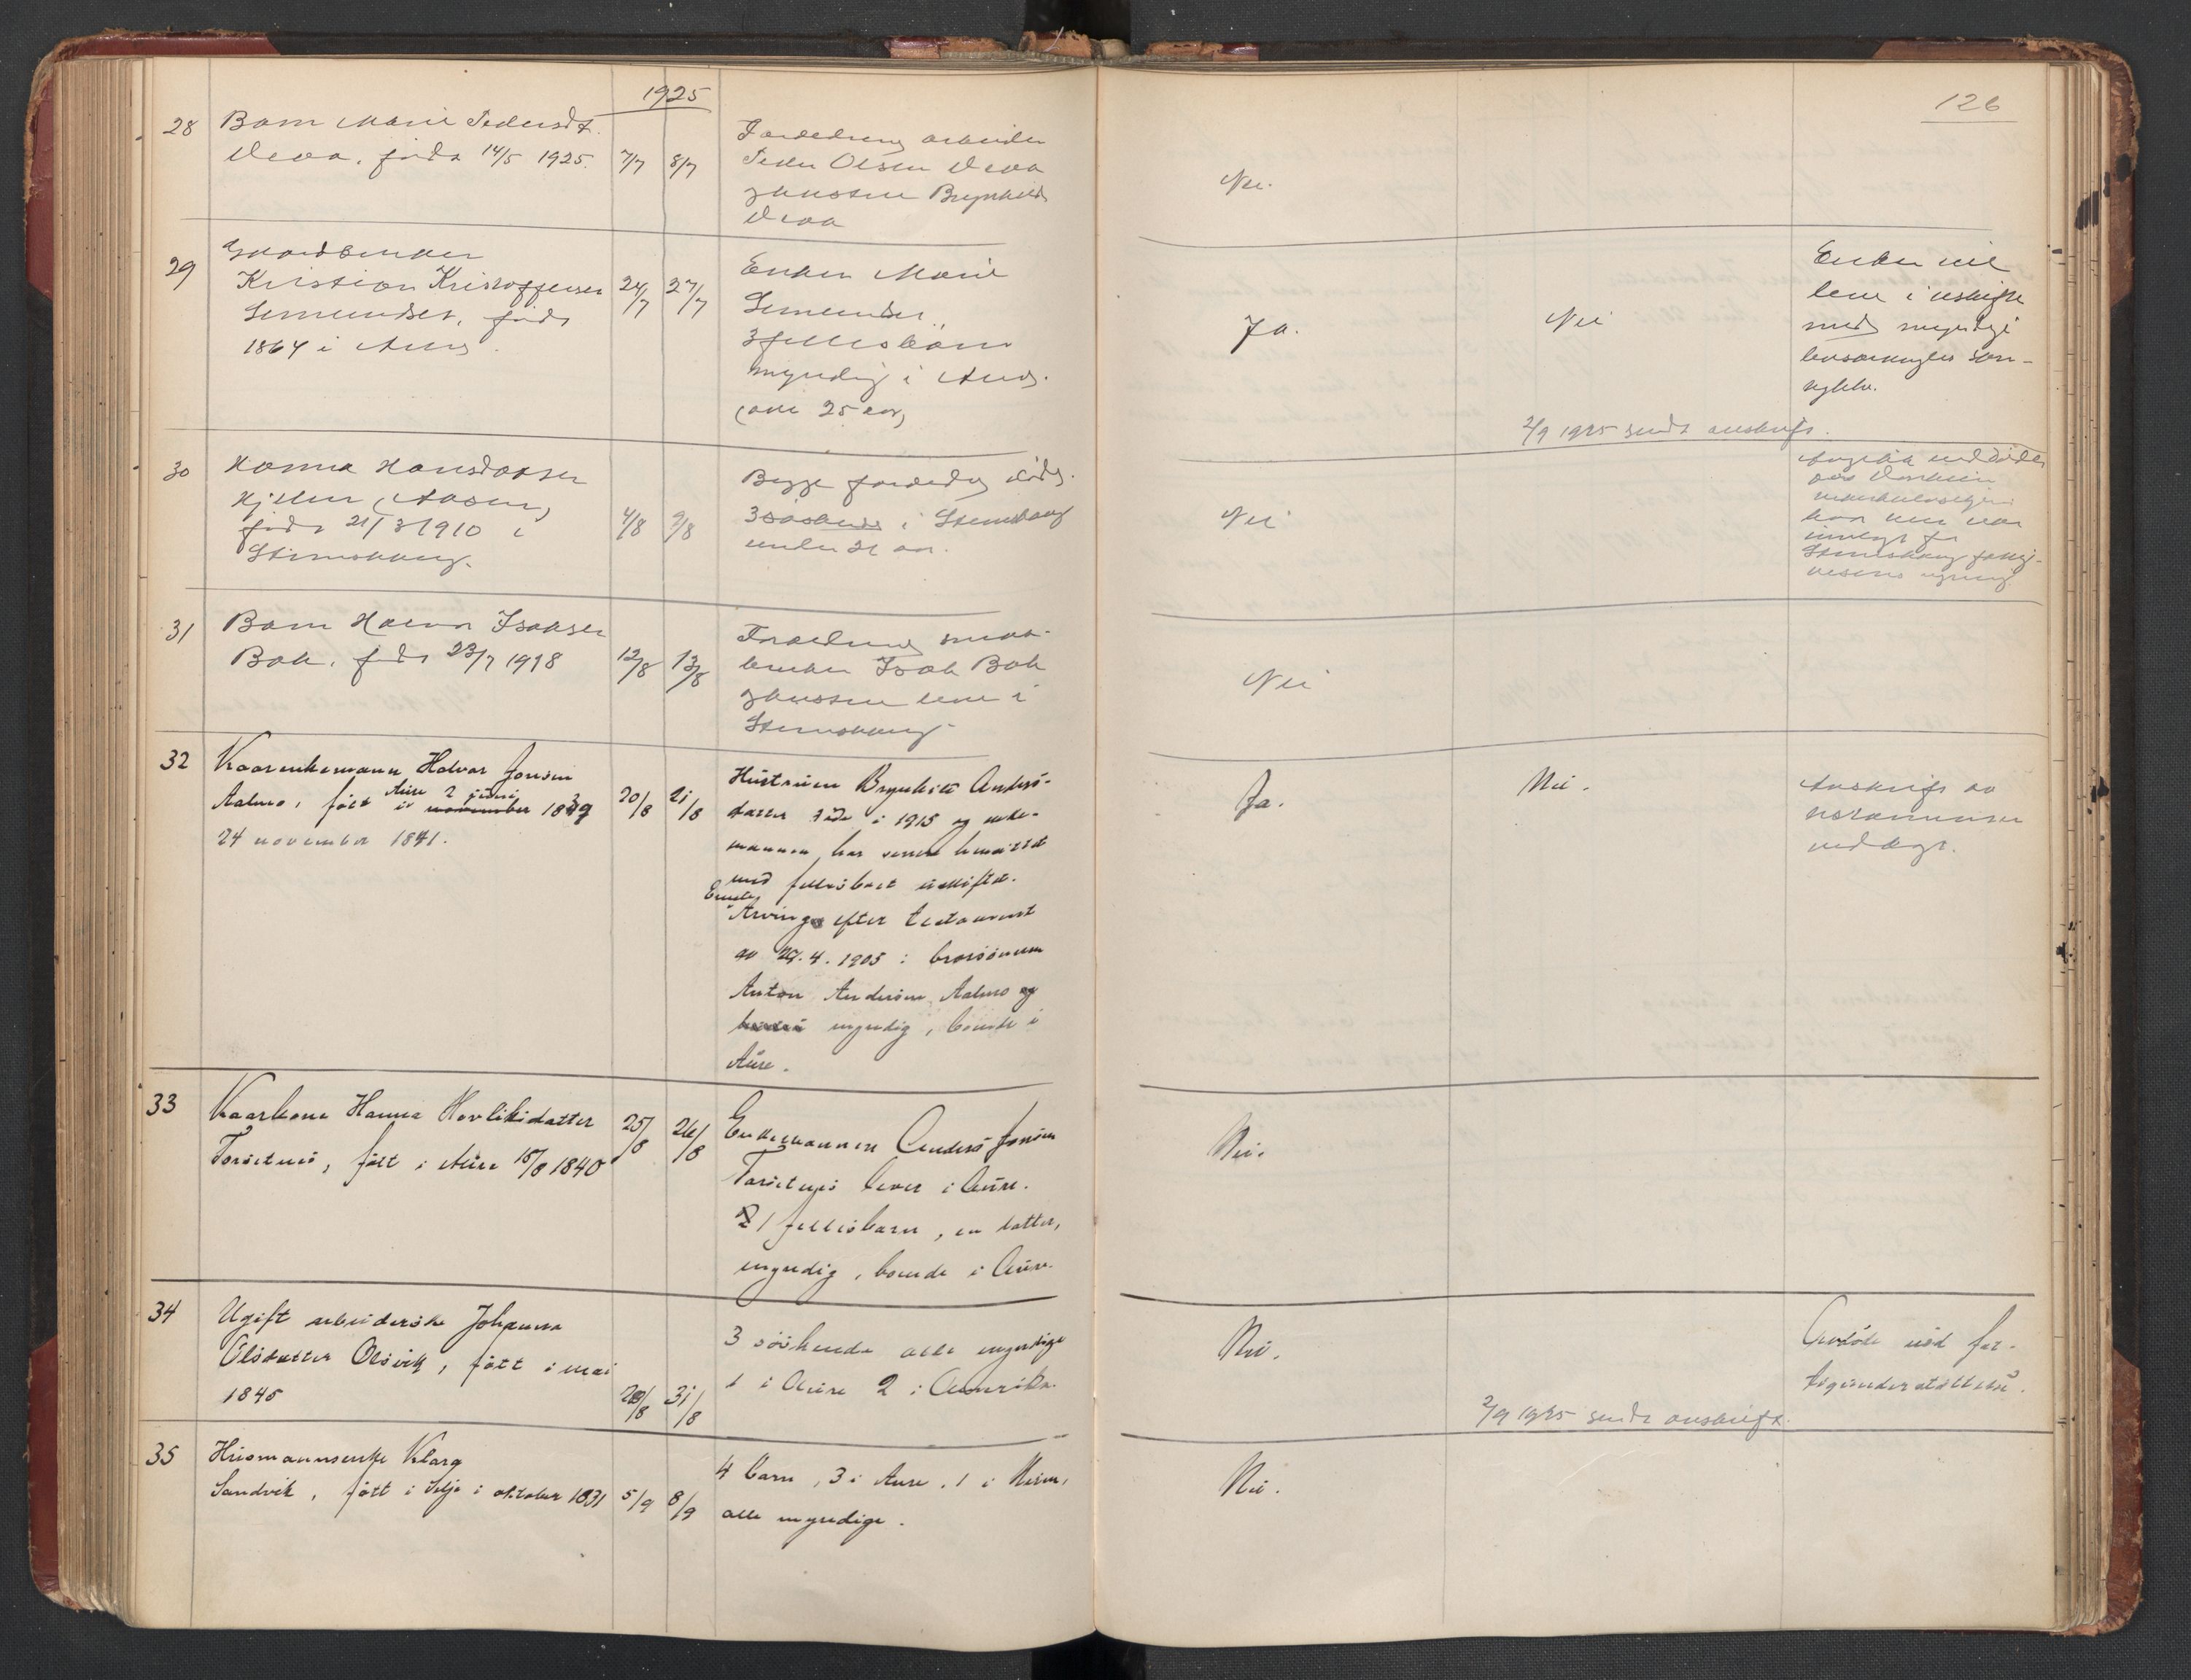 1925
126
28 Barn Marie Pedersdt.
Vean, født 14/5 1925. 7/7 8/7
Forældrene arbeider
Peder Olsen Vean
og hustru Brynhild
Vean
Nei.
29 Gaardbruker
Kristian Kristoffersen
Lemundset, født
1864 i Aure. 24/7 27/7
Enken Marie
Lemundset.
3 fellesbarn
myndig i Aure.
(over 25 aar)
Ja.
Nei
Enken vil
leve i uskifte
med myndige
livsarvingers sam-
tykke.
2/9 1925 sendt avskrift.
30 Hanna Hansdatter
Hjellen (Aasen)
født 21/3 1910 i
Stemshaug. 4/8 9/8
Begge forældre døde.
3 søskende i Stemshaug
under 21 aar.
Nei
Angjeldende døde
paa
hvor hun var
innlagt for
Stemshaug fattig-
vesens regning
31 Barn Isaksen
Bak, født 23/7 1918 12/8 13/8
Forældrene smaa-
bruker Isak Bak
og hustru leve i
Stemshaug
Nei
32 Kaarenkemann Halvor Jonsen
Aalmo, født i Aure 2 juni november 1839
24 november 1841. 20/8 21/8
Hustruen Brynhild Anders-
datter døde i 1915 og enke-
mannen har senere hensittet
med fellesboet uskiftet.
Eneste
Arving efter testament
av 27.4.1905: brorsønnen
Anton Andersen Aalmo og
myndig, boende i
Aure.
Ja.
Nei.
Avskrift av
testamentet
vedlagt.
33 Kaarkone Hanna Havlikidatter
Torsetnes, født i Aure 15/8 1840 25/8 26/8
Enkemannen Anders Jonsen
Torsetnes lever i Aure.
1 fellesbarn, en datter,
myndig, boende i Aure.
Nei.
34 Ugift arbeiderske Johanna
Olsdatter Olsvik, født i mai
1845 29/8 31/8
3 søskende alle myndige
1 i Aure 2 i Amerika.
Nei.
Avdøde nød fat-
tigunderstøttelse.
2/9 1925 sendt avskrift.
35 Husmannsenke Klara
Sandvik, født i Selje i oktober 1831 5/9 8/9
4 barn, 3 i Aure, 1 i Heim,
alle myndige.
Nei.